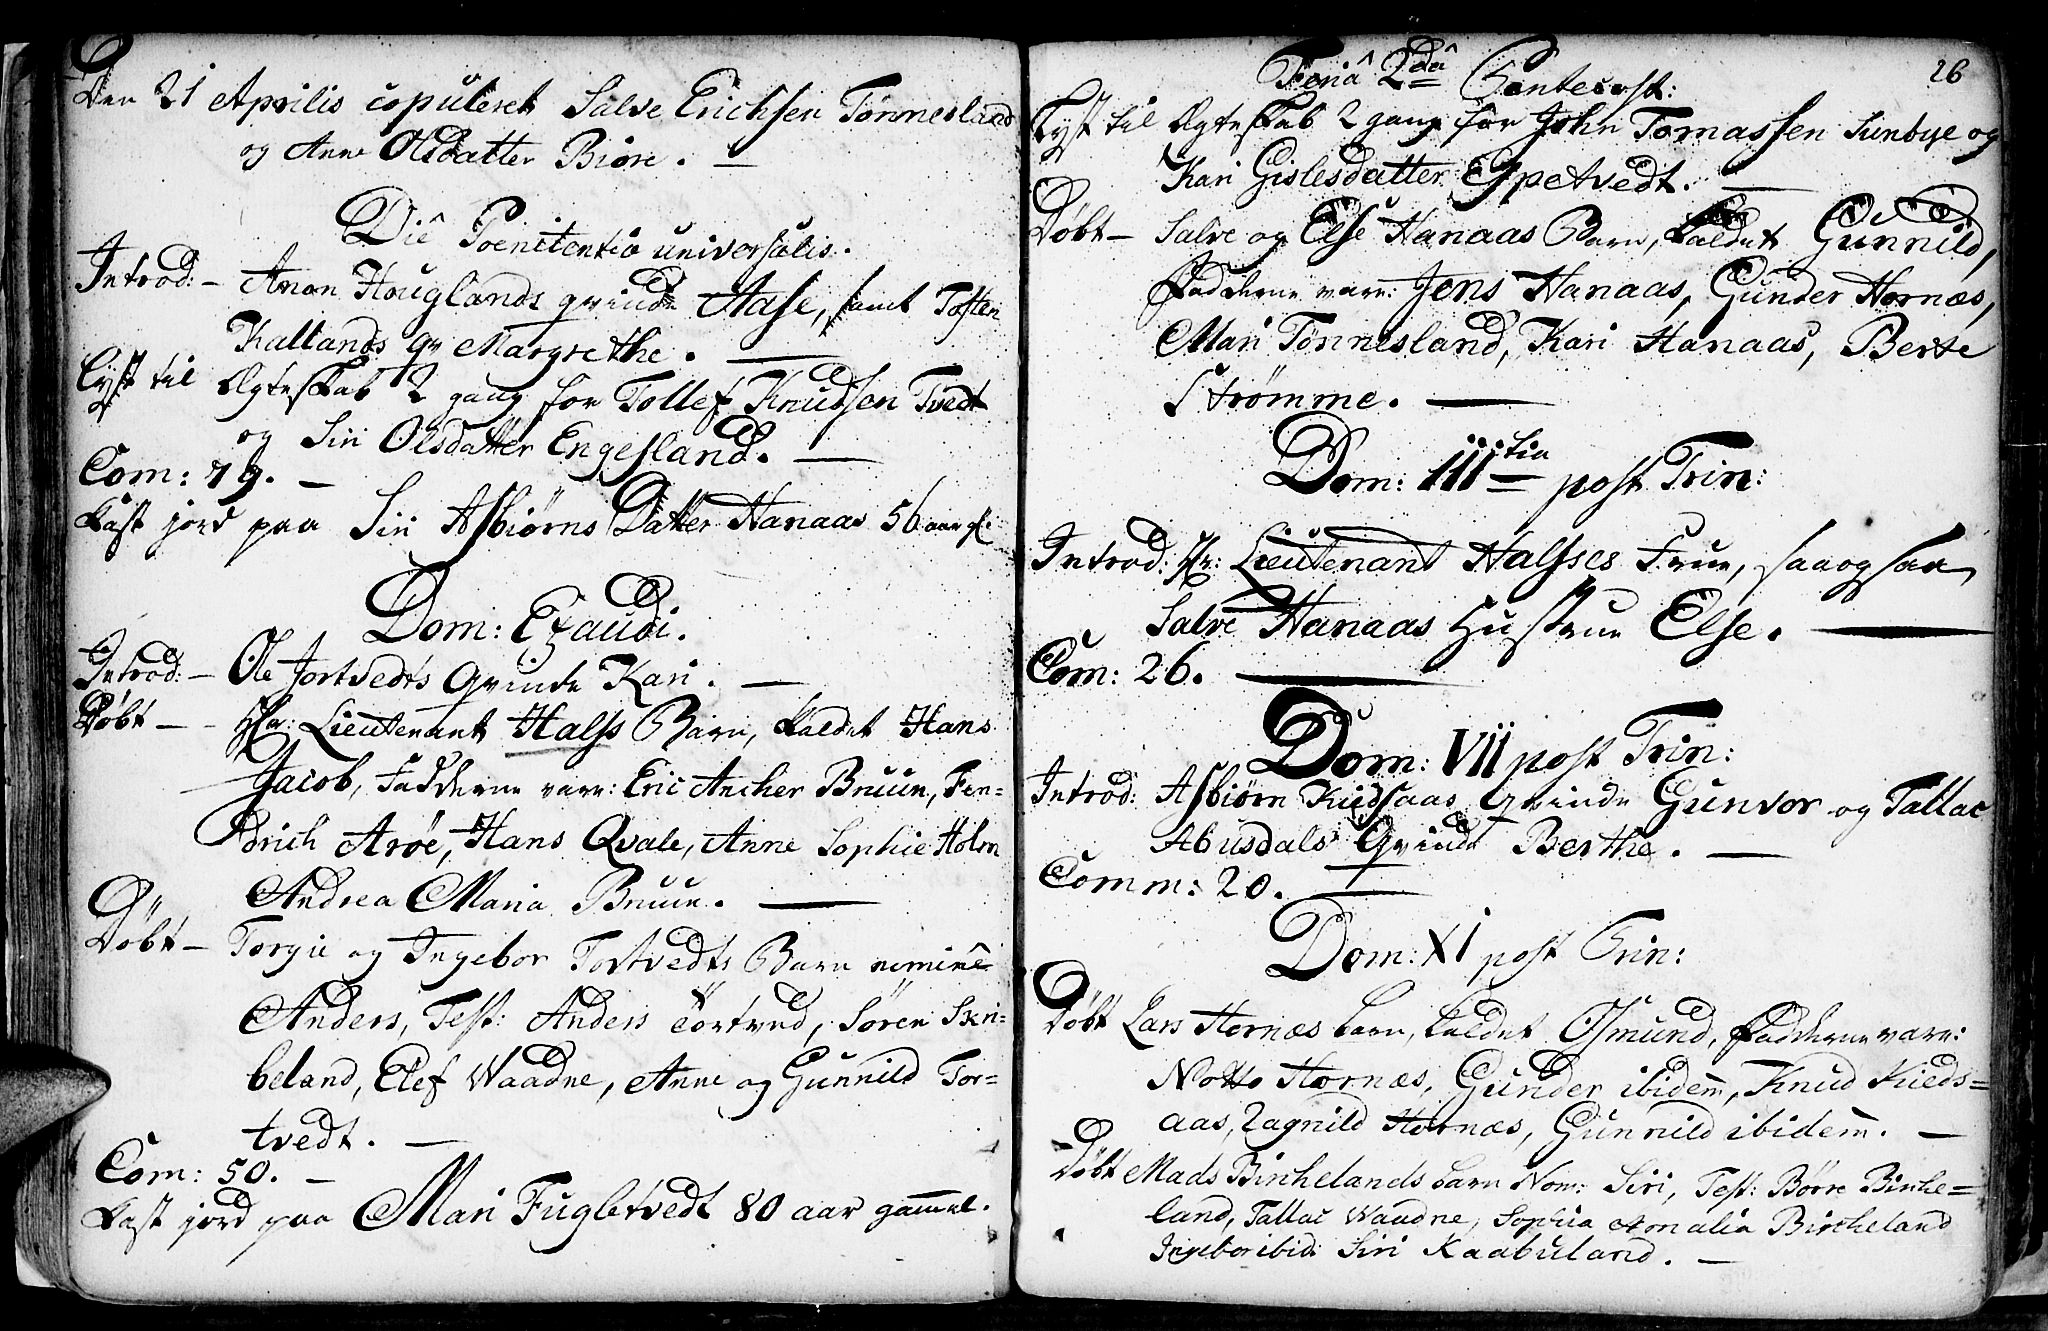 Den 21 Aprilis copuleret Salve Erichsen Tønnesland
og Anne Olsdatter Biøre. —
Diê Poenitentiæ universalis.
Introd: — Anon Houglands qvinde Aase, samt Tosten
Kallands qv Margrethe. —
Lyst til Ægteskab 2 gang for Tollef Knudsen Tvedt
og Siri Olsdatter Engesland. —
Com: 79. —
Kast jord paa Siri Asbiørns Datter Hanaas 56 aar gl:
Dom: Exaudi.
Introd: — Ole Jortvedts Qvinde Kari. —
Døbt — Hr: Lieutenant Halss Barn, kaldet Hans
Jacob, Fadderne vare: Eric Ancher Bruun, Fen-
drich Arøe, Hans Qvale, Anne Sophie Holm
Andrea Maria Bruun. —
Døbt — Torgie og Ingebor Tortvedts Barn nominê
Anders, Test: Anders Tortved, Søren Skri-
beland, Elef Waadne, Anne og Gunnild Tor-
tvedt. —
Com: 50. —
Kast jord paa Mari Fugletvedt 80 aar gammel.
26
Feriâ 2dâ Pentecost:
Lyst til Ægteskab 2 gang for John Tomassen Sunbye og
Kari Gislesdatter Espetvedt. —
Døbt — Salve og Else Hanaas Barn, kaldet Gunnild,
Fadderne vare: Jens Hanaas, Gunder Hornæs,
Mari Tønnesland, Kari Hanaas, Berte
Strømme. —
Dom: IIItia post Trin:
Introd: Hr: Lieutenant Halsses Frue, saaogsaa
Salve Hanaas Hustrue Else. —
Com: 26. —
Dom: VII post Trin:
Introd: Asbiørn Kiedsaas Qvinde Gunvor og Tallac
Abusdals Qvinde Berthe. —
Comm: 20. —
Dom: XI post Trin:
Døbt Lars Hornæs barn, kaldet Osmund, Fadderne vare:
Notto Hornæs, Gunder ibidem, Knud Kieds=
aas, Ragnild Hornæs, Gunnild ibidem. —
Døbt Mads Birchelands barn Nom: Siri, Test: Børre Birche=
land, Tallac Waadne, Sophia Amalia Bircheland
Ingebor ibid: Siri Kaabuland. —